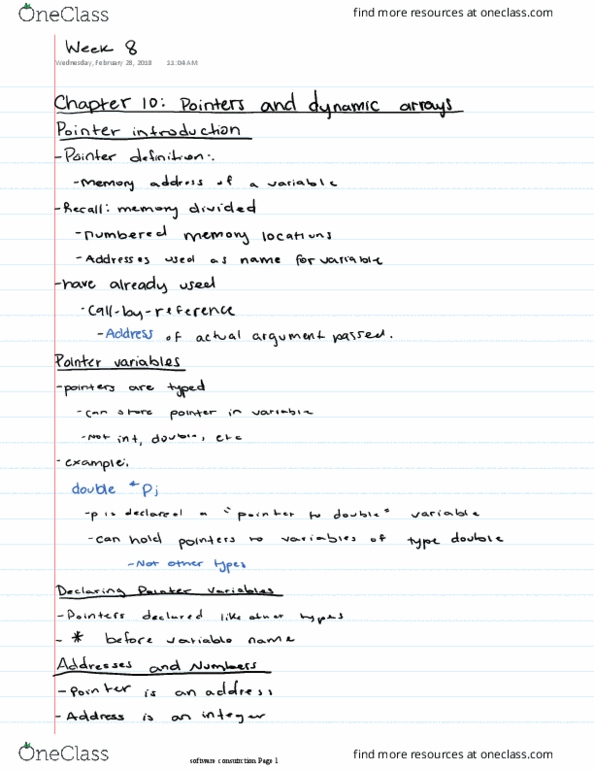 OneClass
find more resources at oneclass.com
Week 8
Wednesday, February 28, 2018 11:04 AM
Chapter 10: Pointers and dynamic arrays
Pointer introduction
-Pointer definition:
-Memory address of a variable
-Recall: memory divided
-numbered memory locations
-Addresses used as name for variable
-have already used
-call-by-reference
-Address of actual argument passed.
Pointer variables
-pointers are typed
-can store pointer in variable
-Not int, double, etc
-example:
double *p;
-p is declared a "pointer to double" variable
-can hold pointers to variables of type double
-Not other types
Declaring Pointer Variables
-Pointers declared like other types
- * before variable name
Addresses and Numbers
-Pointer is an address
-Address is an integer
software construction Page 1
OneClass
find more resources at oneclass.com